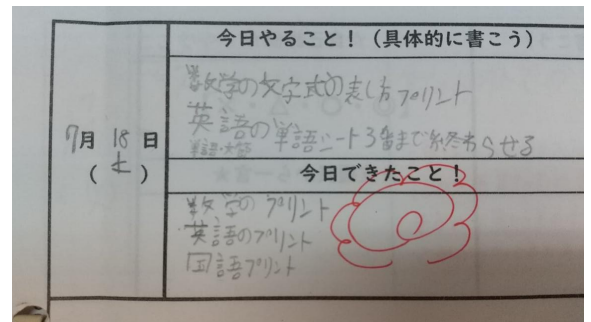 今日やること！（具体的に書こう）
数学の文字式の表し方プリント
英語の単語シート3番まで終わらせる
7月18日
(土)
今日できたこと！
数学のプリント
英語のプリント
国語プリント